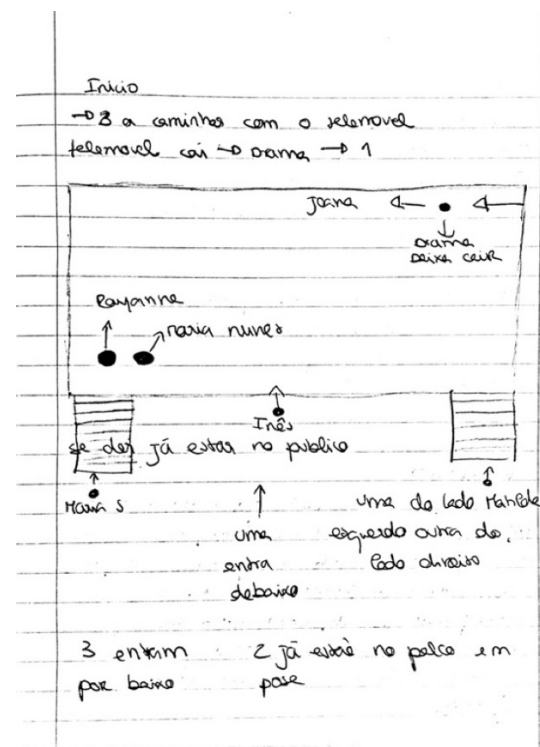 Início
→ 3 a caminhar com o telemovel
telemovel cai → Drama → 1
Joana
Drama
Deixa cair
Rayanne
Maria nunes
Inês
se der já estar no publico
Maria S
Matilde
uma do lado
esquerdo outra do
lado direito
uma
entra
debaixo
3 entram
por baixo
2 já estão no palco em
pose